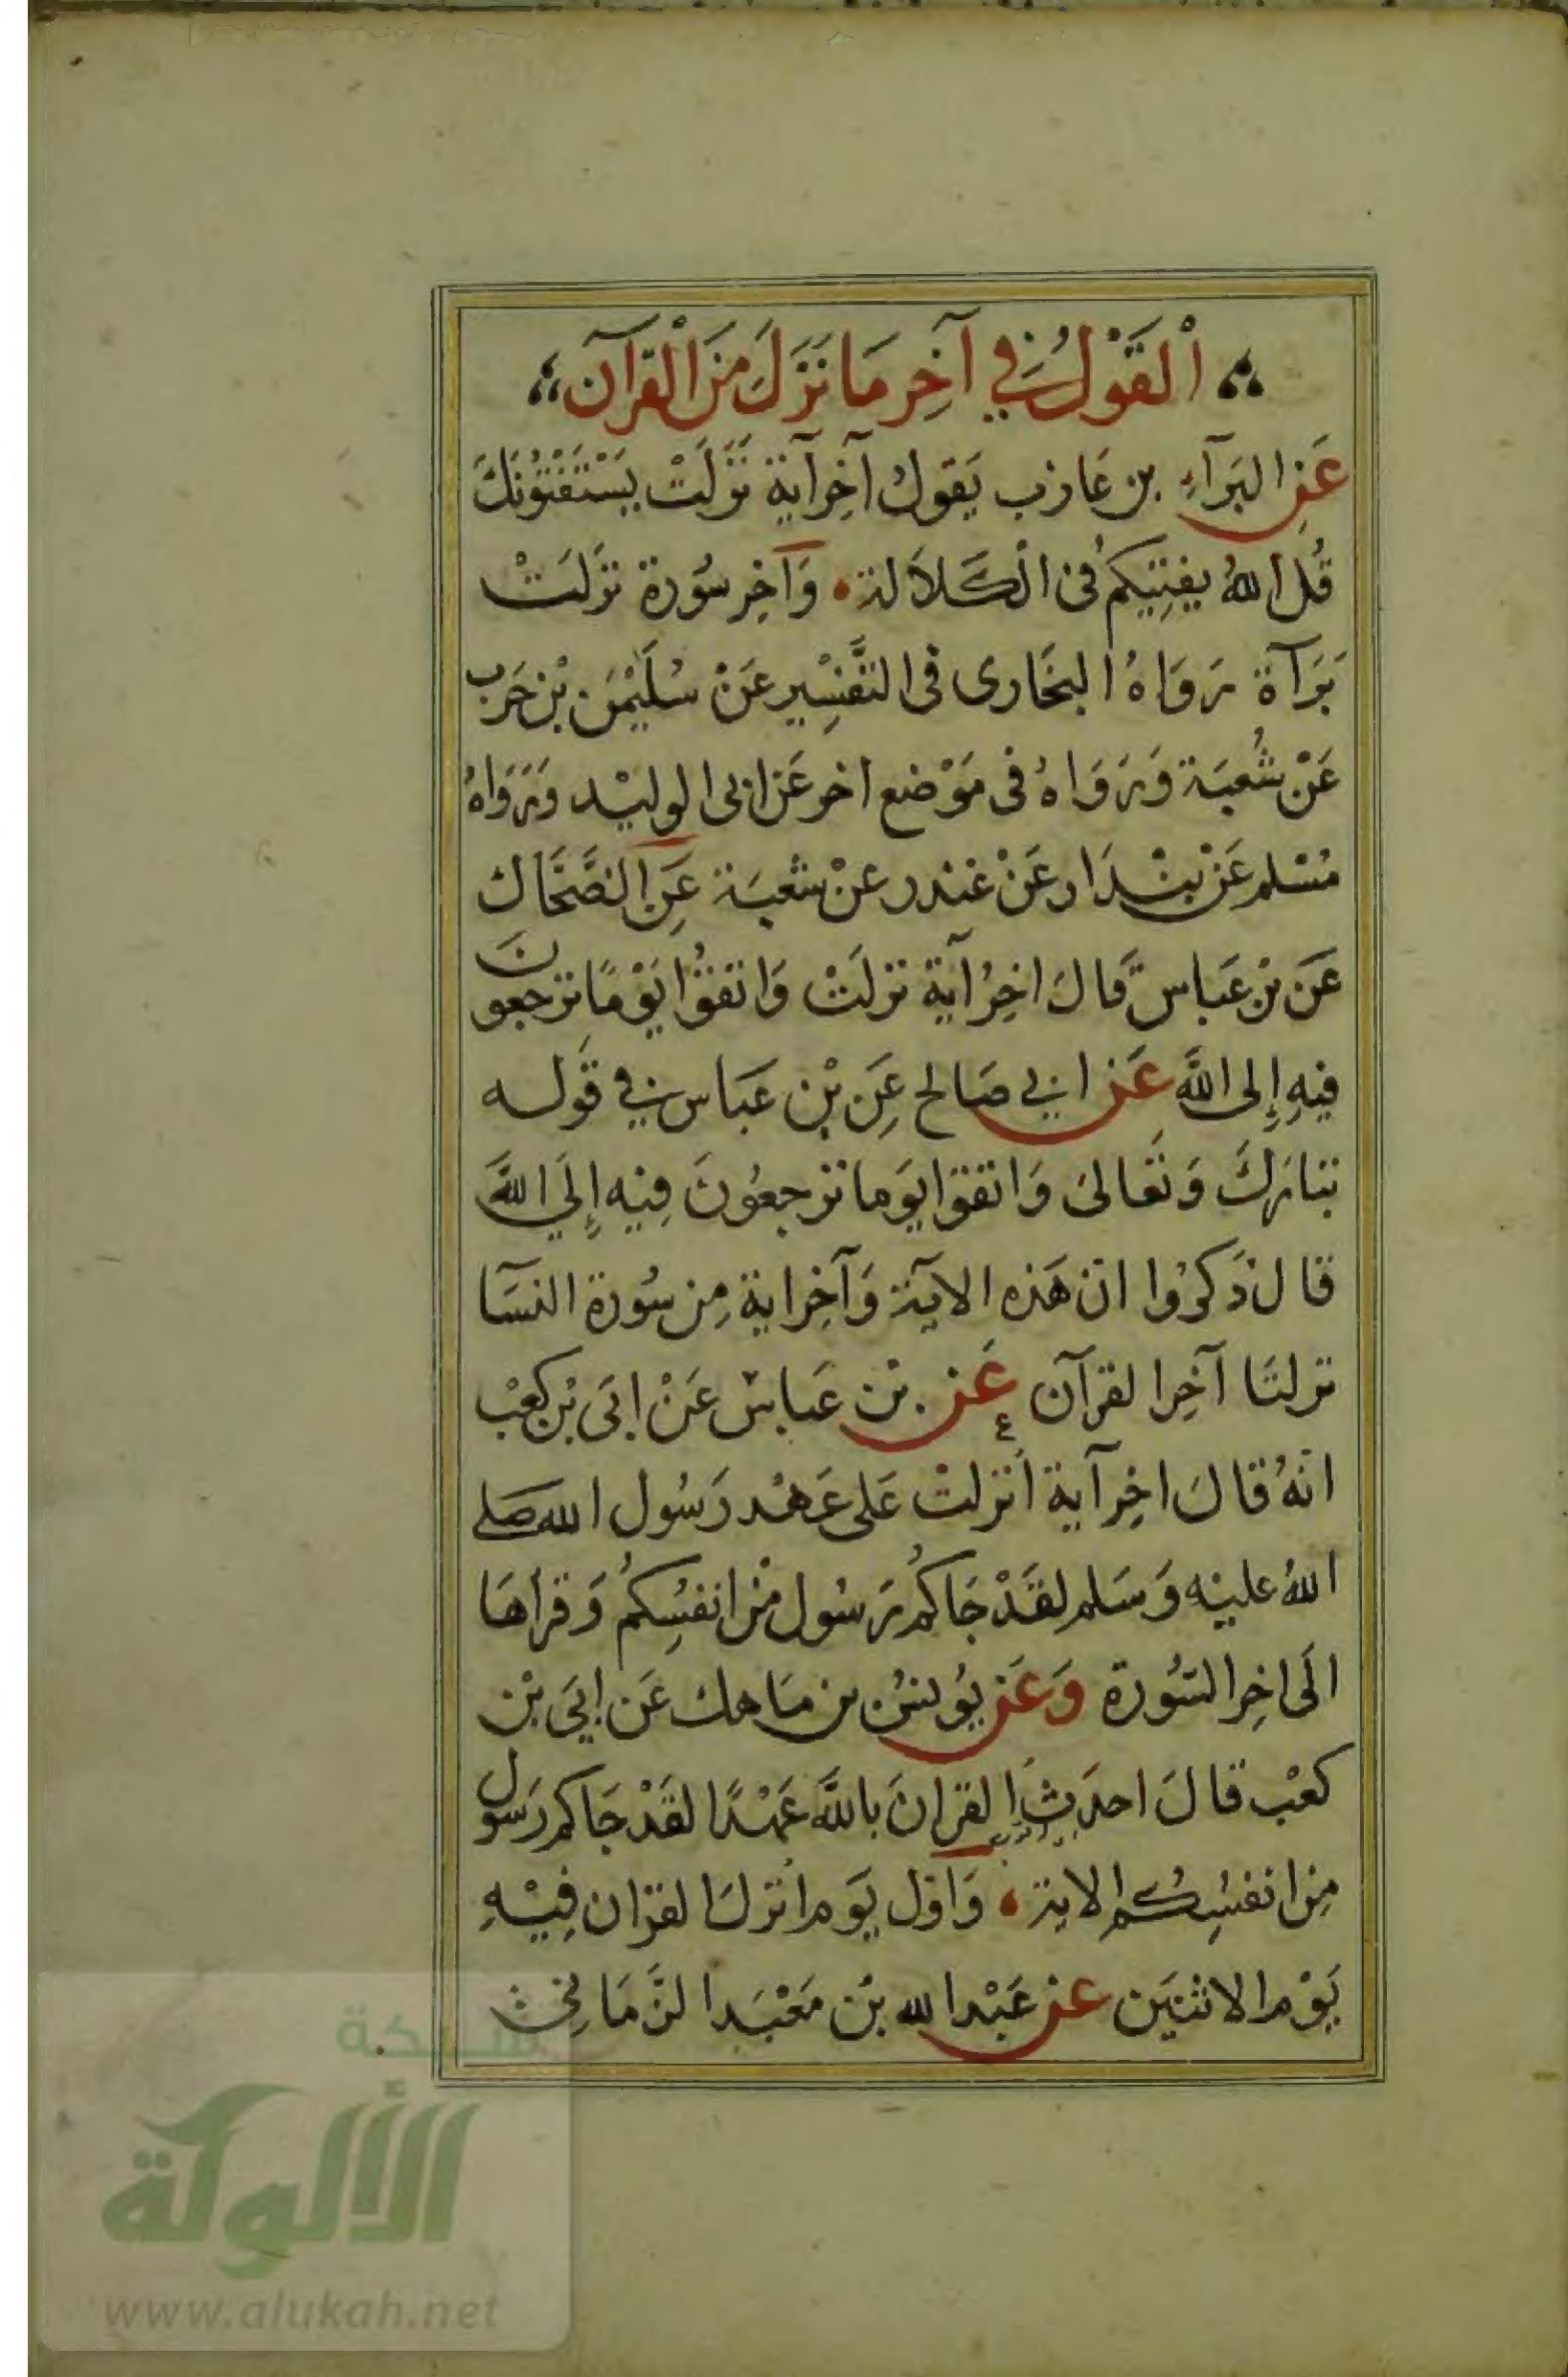 اْلقَوْلُ فِي آخِرِ مَا نَزَلَ مِنَ الْقُرآن
عَنِ البَرَآءِ بن عَازب يَقول آخِر آية نَزَلَتْ يَسْتَفْتُونَكَ
قُلِ اللهُ يفتِيكُم فى الْكَلاَلة وَآخِر سُورة نزلَتْ
بَرَآة رَوَاهُ البخَارى فى التَّفسِير عَنْ سُلَيْمٰن بْن حَرَب
عَنْ شُعبَة وَرَوَاهُ فى مَوْضع اخر عَن ابى الوليْد وَرَوَاهُ
مُسْلم عَنْ بنْدَار عَنْ غندر عنْ شعبَة عَنِ الضَّحَّاك
عَن بْن عَباس قَالَ اخِرُ آية نزلَتْ وَاتقوُا يَوْمًا ترجعونَ
فيهِ إِلى اللَّه عَن ابي صَالح عَنِ بْن عَبَاس في قَوله
تبارَكَ وَتَعَالىَ وَاتقوا يَوما ترجعُونَ فِيه إِلَي اللَّه
قال ذَكَرُوا ان هَذه الاَية وَآخِر اية مِن سُورة النسَآ
نزلتَا آخِر القرآن عَن بْن عَباسْ عَنْ ابَى بْن كعْب
انهُ قالَ اخِر آية اُنزلتْ عَلى عَهْد رَسُول الله صَلى
اللهُ عليْه وَسَلم لقَدْ جَاكُم رَسُول مْن انفسِكُم وَقرأهَا
الَى اخِر السُورة وَعَن يُوسُن بن مَاهك عَن ابَي بْن
كعْب قالَ احدَث القرانَ باللَّه عَهْدًا لقَدْ جَاكم رَسول
مِن انفسِكُم الاية وَاوّل يَوم اُنزلَ القران فِيْهِ
يَوْم الاثنَيَن عَن عَبْد الله بْن مَعْبَد الزَمَاني
شبكة
الألوكة
www.alukah.net